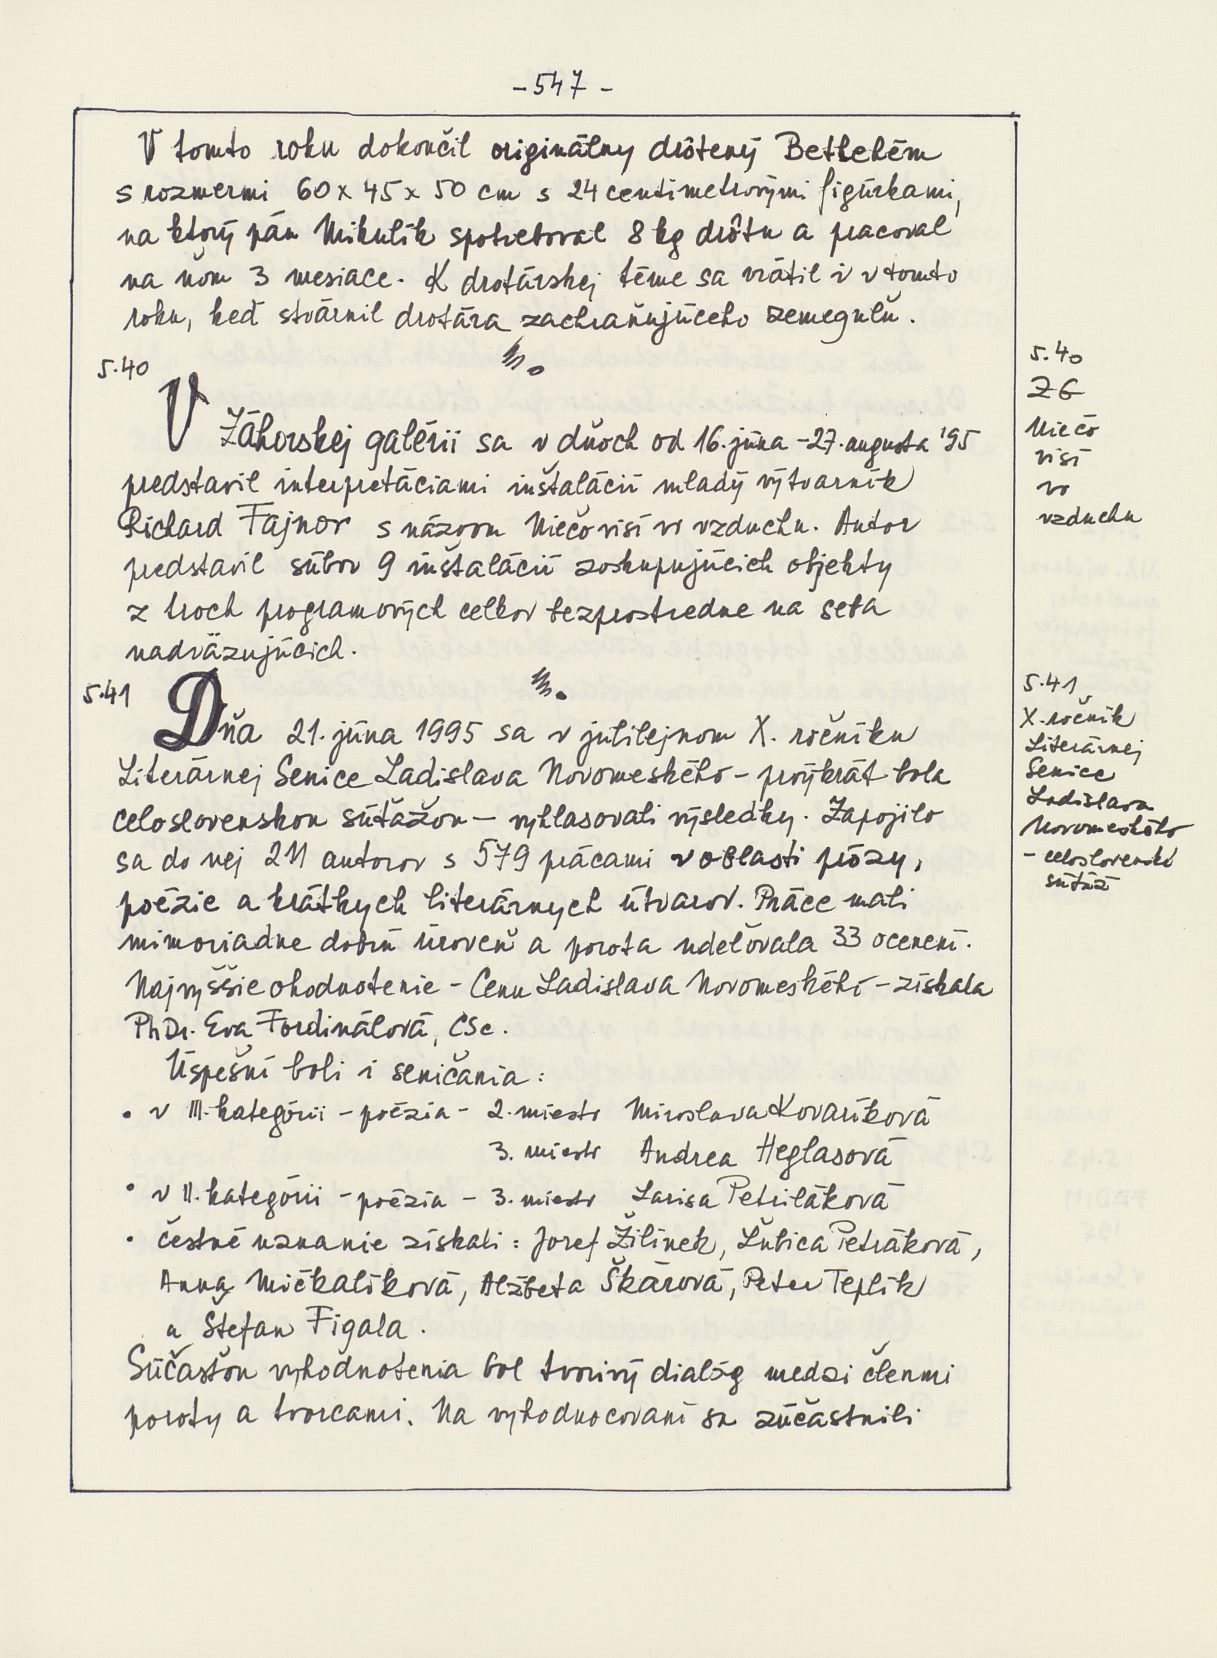 - 547 -
V tomto roku dokončil originálny drôtený Betlehém
s rozmermi 60 x 45 x 50 cm s 24 centimetrovými figúrkami,
na ktorý pán Mikulík spotreboval 8 kg drôtu a pracoval
na ňom 3 mesiace. K drotárskej téme sa vrátil i v tomto
roku, keď stvárnil drotára zachraňujúceho zemeguľu.
5.40
V Záhorskej galérii sa v dňoch od 16. júna - 27. augusta '95
predstavil interpretáciami inštalácií mladý výtvarník
Richard Fajnor s názvom Niečo visí vo vzduchu. Autor
predstavil súbor 9 inštalácií zoskupujúcich objekty
z troch programových celkov bezprostredne na seba
nadväzujúcich.
5.40
ZG
Niečo
visí
vo
vzduchu
5.41
Dňa 21. júna 1995 sa v jubilejnom X. ročníku
Literárnej Senice Ladislava Novomeského - prvýkrát bola
celoslovenskou súťažou - vyhlasovali výsledky. Zapojilo
sa do nej 211 autorov s 579 prácami v oblasti prózy,
poézie a krátkych literárnych útvarov. Práce mali
mimoriadne dobrú úroveň a porota udeľovala 33 ocenení.
Najvyššie ohodnotenie - Cenu Ladislava Novomeského - získala
PhDr. Eva Fordinálová, CSc.
Úspešní boli i seničania :
• v III. kategórii - poézia - 2. miesto Miroslava Kovaríková
3. miesto Andrea Heglasová
• v II. kategórii - poézia - 3. miesto Larisa Petriláková
• čestné uznanie získali : Jozef Žilínek, Ľubica Petráková,
Anna Mičkalíková, Alžbeta Škárová, Peter Teplík
a Štefan Figala.
Súčasťou vyhodnotenia bol tvorivý dialóg medzi členmi
poroty a tvorcami. Na vyhodnocovaní sa zúčastnili
5.41
X. ročník
Literárnej
Senice
Ladislava
Novomeského
- celoslovenská
súťaž